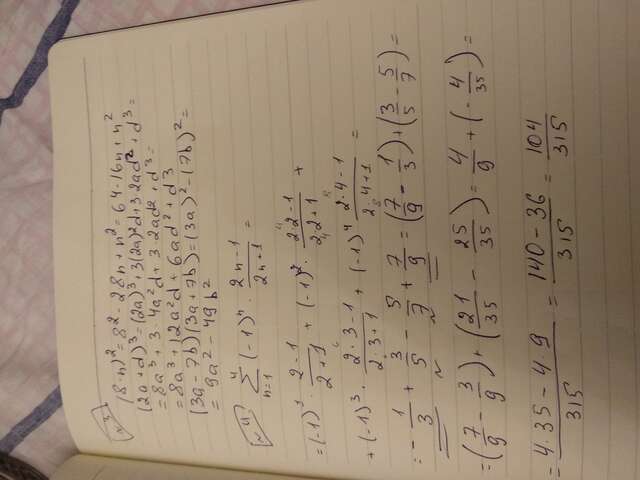 №3
(8-n)² = 8² - 2·8n + n² = 64 - 16n + n²
(2a+d)³ = (2a)³ + 3(2a)²d + 3·2ad² + d³ =
= 8a³ + 3·4a²d + 3·2ad² + d³ =
= 8a³ + 12a²d + 6ad² + d³
(3a - 7b)(3a + 7b) = (3a)² - (7b)² =
= 9a² - 49b²
№4
4 ∑ n=1 (-1)ⁿ · (2n-1)/(2n+1) =
= (-1)¹ · (2-1)/(2+1) + (-1)² · (2·2-1)/(2·2+1) +
+ (-1)³ · (2·3-1)/(2·3+1) + (-1)⁴ (2·4-1)/(2·4+1) =
= - 1/3 + 3/5 - 5/7 + 7/9 = (7/9 - 1/3) + (3/5 - 5/7) =
= (7/9 - 3/9) + (21/35 - 25/35) = 4/9 + (- 4/35) =
= (4·35 - 4·9)/315 = (140 - 36)/315 = 104/315